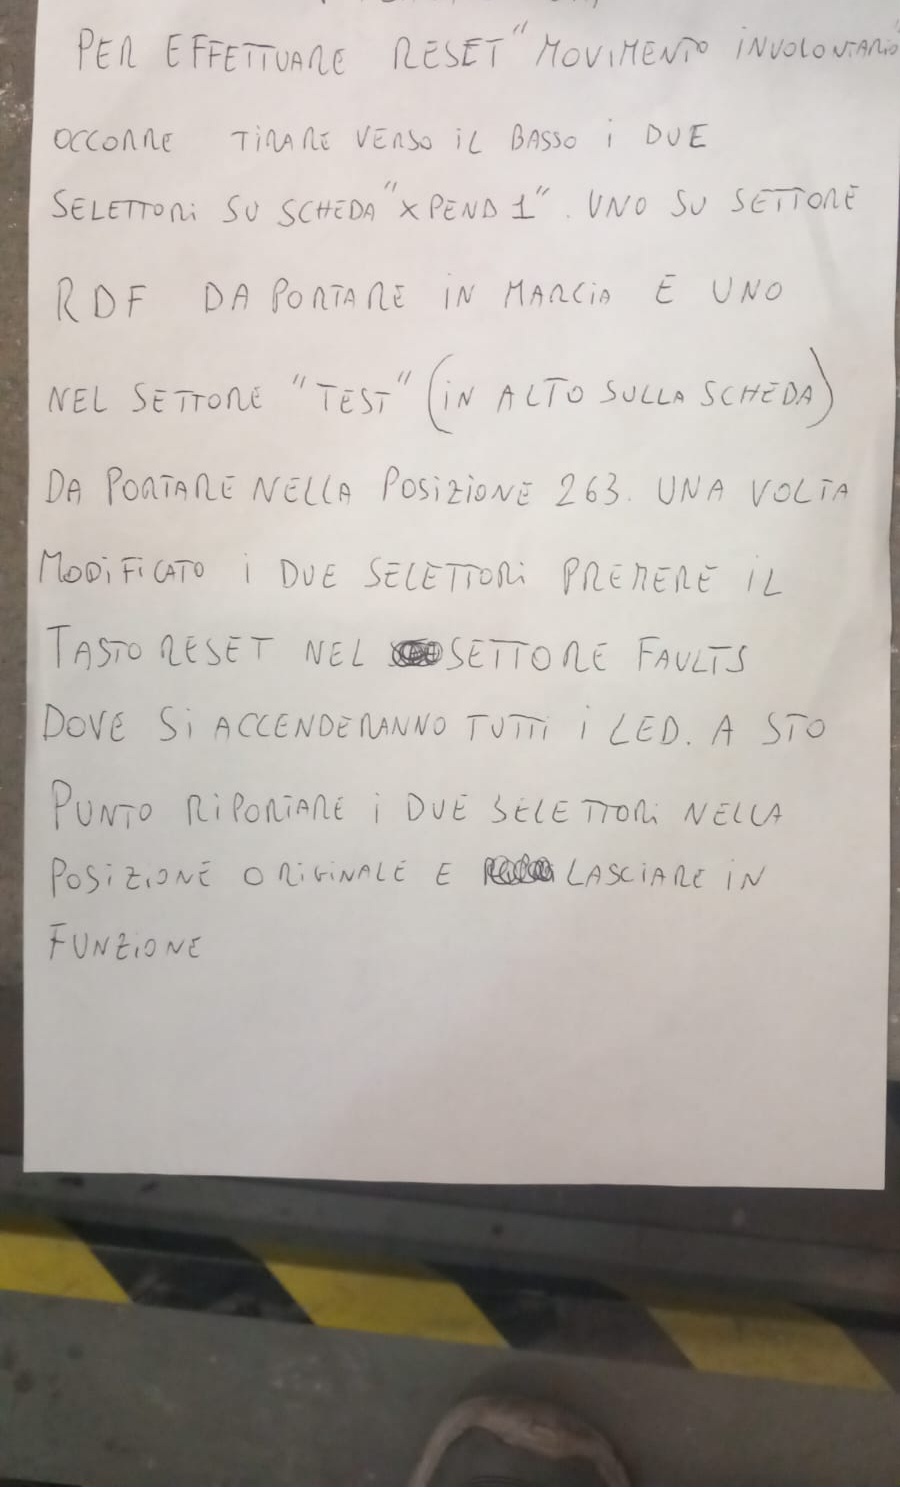 PER EFFETTUARE RESET "MOVIMENTO INVOLONTARIO"
OCCORRE TIRARE VERSO IL BASSO I DUE
SELETTORI SU SCHEDA "XPEND1". UNO SU SETTORE
RDF DA PORTARE IN MARCIA E UNO
NEL SETTORE "TEST" (IN ALTO SULLA SCHEDA)
DA PORTARE NELLA POSIZIONE 263. UNA VOLTA
MODIFICATO I DUE SELETTORI PREMERE IL
TASTO RESET NEL SETTORE FAULTS
DOVE SI ACCENDERANNO TUTTI I LED. A STO
PUNTO RIPORTARE I DUE SELETTORI NELLA
POSIZIONE ORIGINALE E LASCIARE IN
FUNZIONE